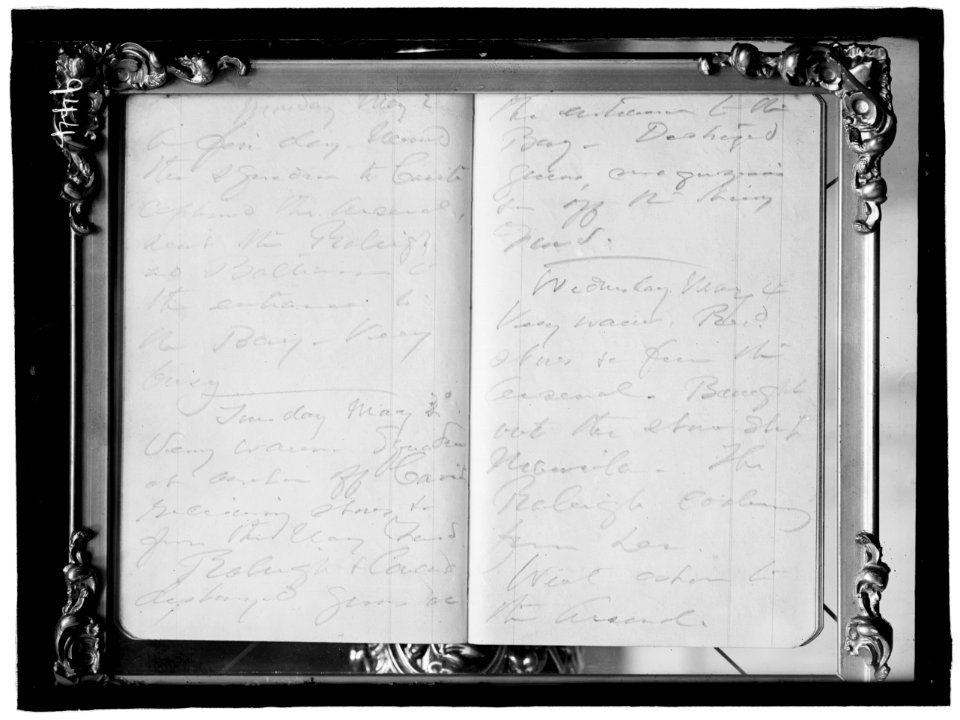 Monday May 2
A fine day. Moved
the squadron to Cavite
captured the Arsenal,
sent the Raleigh
& Baltimore to
the entrance to
the Bay. Very
busy
Tuesday May 3d
Very warm. Squadron
at anchor off Cavite
receiving stores &c
from the Navy Yard
Raleigh &
destroyed guns at
the entrance to the
Bay. Destroyed
guns, magazines
in off the
Wednesday May 4
Very warm. Recd
stores &c from the
Arsenal. Brought
out the store ship
Manila. The
Raleigh coaling
from her.
Went ashore to
the Arsenal.